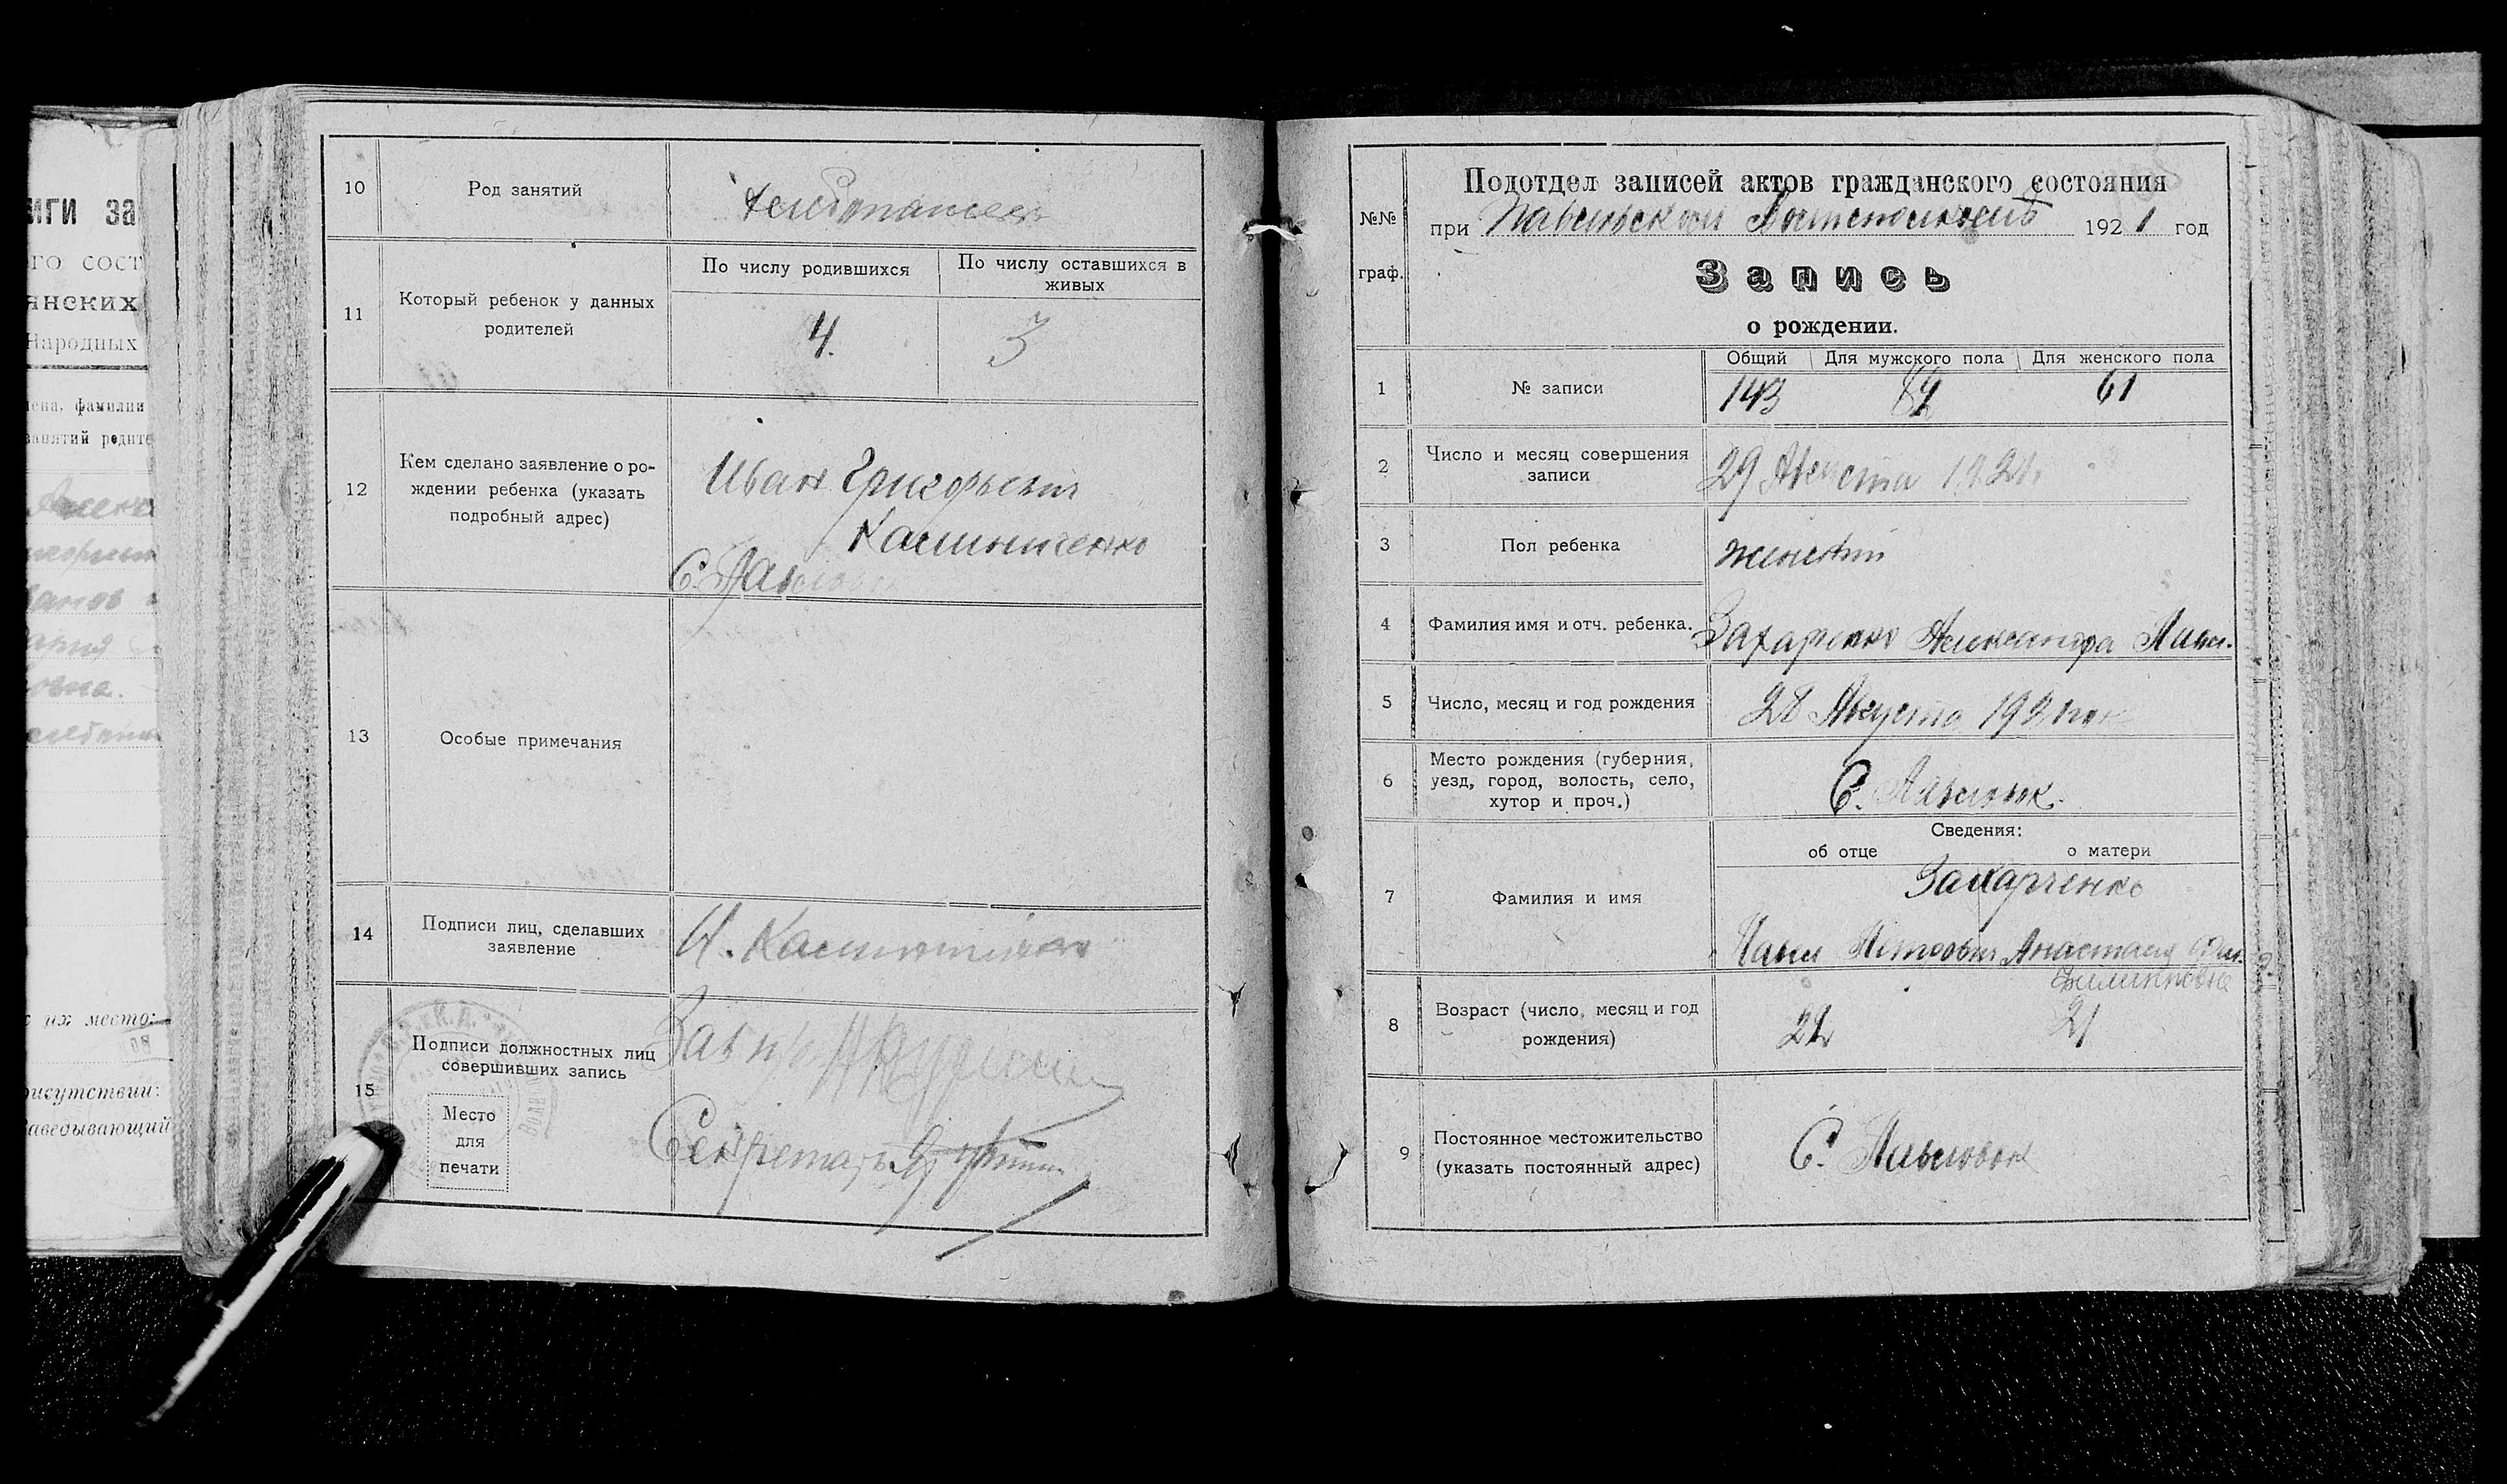 иги за
го сост
янских
Народных
ена, фамилии
занятий родите
их место:
рисутствии:
аведывающий
10 Род занятий хлебопашец
11 Который ребенок у данных родителей
По числу родившихся
По числу оставшихся в живых
4. 3
12 Кем сделано заявление о ро-
ждении ребенка (указать
подробный адрес)
Иван Григорьевич
Калиниченко
С. Павловск
13 Особые примечания
14 Подписи лиц, сделавших
заявление
И. Калиниченко
15 Подписи должностных лиц
совершивших запись
Зав п/о
Секретарь
Место
для
печати
Подотдел записей актов гражданского состояния
№№ при Павловском Волисполкоме 1921 год
граф. Запись
о рождении.
Общий Для мужского пола Для женского пола
1 № записи 143 61
2 Число и месяц совершения
записи
29 Августа 1921.
3 Пол ребенка женский
4 Фамилия имя и отч. ребенка. Захарченко Александра Павл.
5 Число, месяц и год рождения 28 Августа 1921 год
6 Место рождения (губерния,
уезд, город, волость, село,
хутор и проч.)
С. Павловск.
Сведения:
об отце о матери
7 Фамилия и имя
Захарченко
Павел Петрович Анастасия
Филипповна
8 Возраст (число, месяц и год
рождения)
22 21
9 Постоянное местожительство
(указать постоянный адрес)
С. Павловск